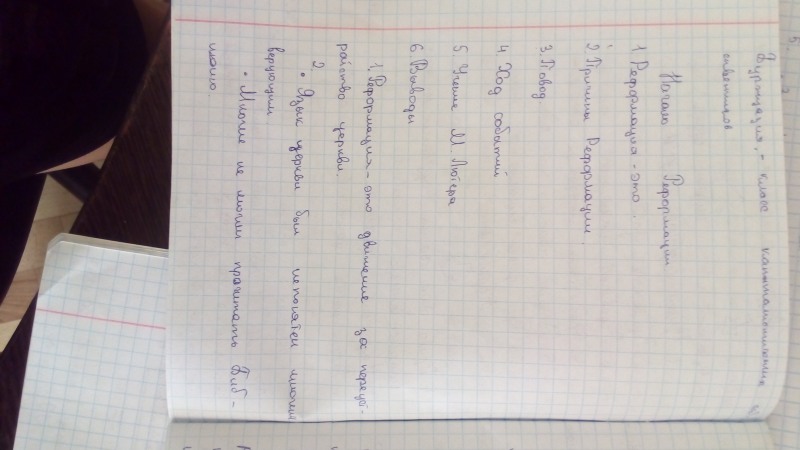 Буржуазия, - класс капиталистических
ответников
Начало Реформации
1. Реформация - это
2. Причины Реформации.
3. Повод
4. Ход событий
5. Учение М. Лютера
6. Выводы
1. Реформация - это движение за переуст-
ройство церкви.
2.
• Язык церкви был непонятен многим
верующим.
• Многие не могли прочитать Биб-
лию.